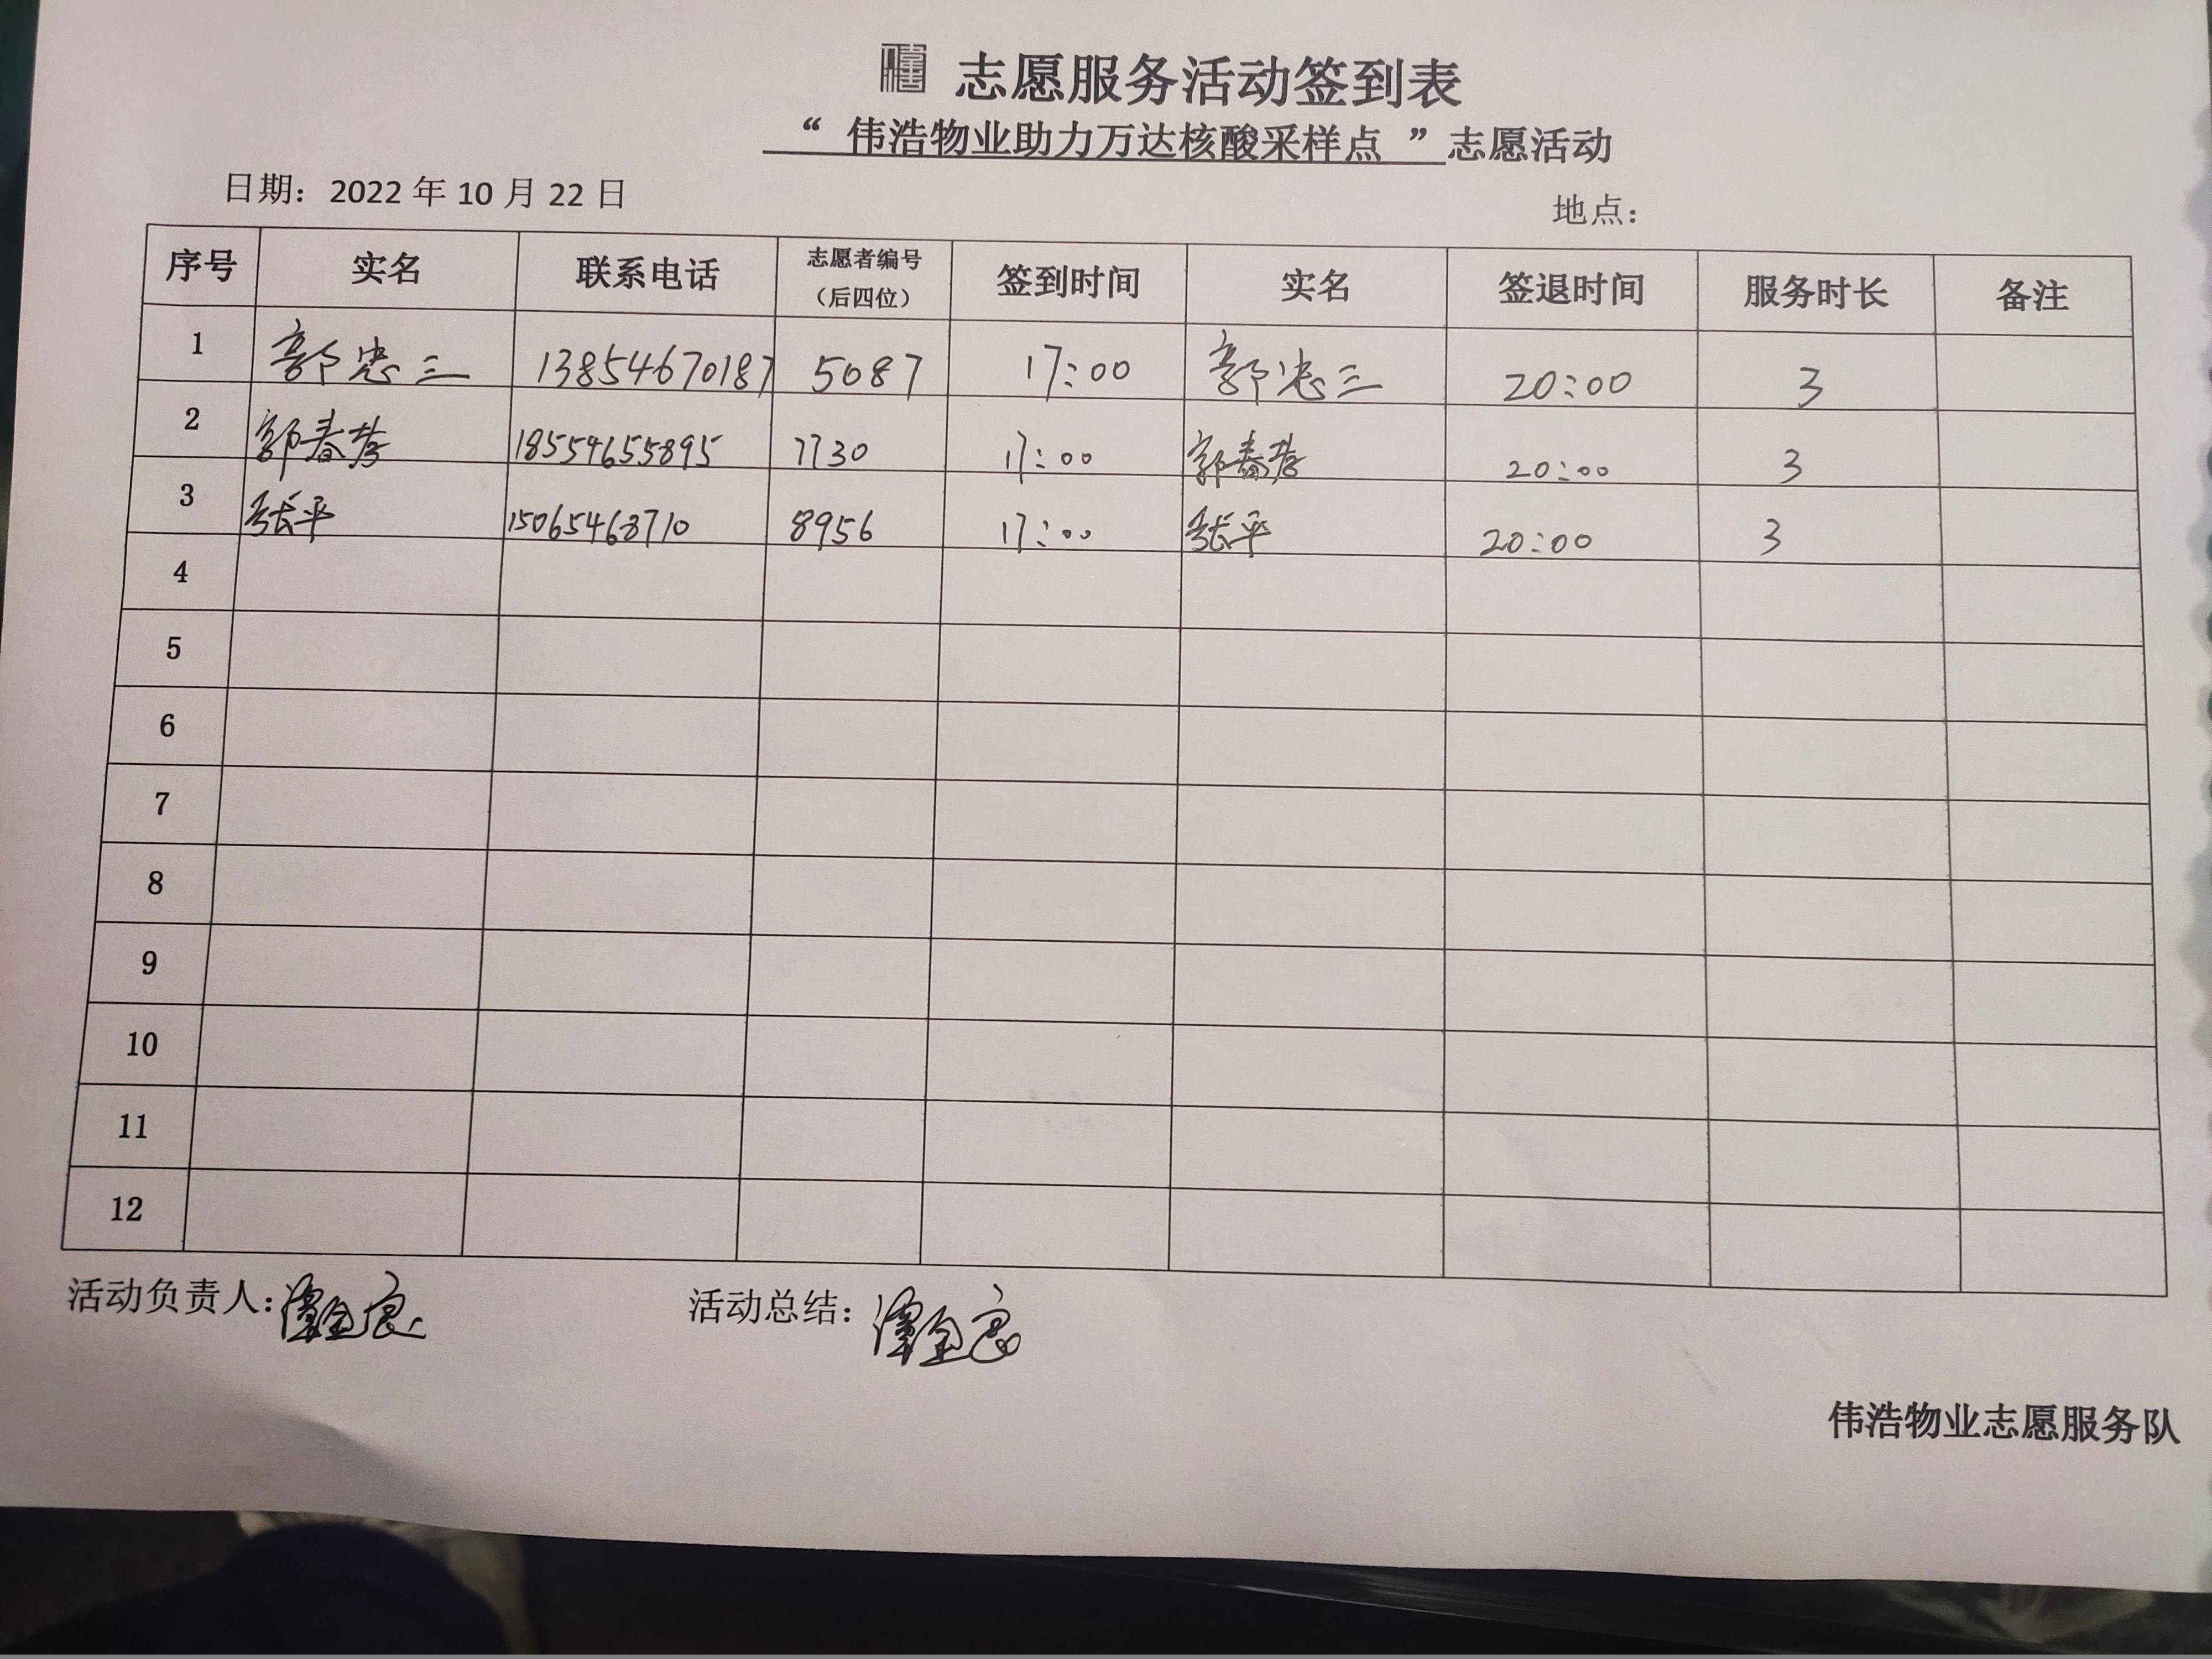 志愿服务活动签到表
“ 伟浩物业助力万达核酸采样点 ”志愿活动
日期：2022 年 10 月 22 日 地点：
序号 实名 联系电话 志愿者编号（后四位） 签到时间 实名 签退时间 服务时长 备注
1 郭忠三 13854670187 5087 17:00 郭忠三 20:00 3
2 郭春 18554655895 7730 17:00 郭春 20:00 3
3 张平 15065468710 8956 17:00 张平 20:00 3
4
5
6
7
8
9
10
11
12
活动负责人： 活动总结：
伟浩物业志愿服务队